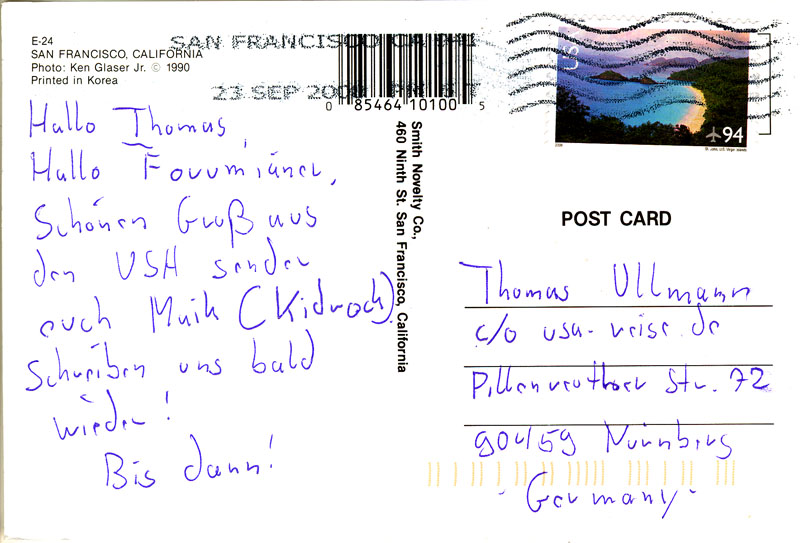 E-24
SAN FRANCISCO, CALIFORNIA
Photo: Ken Glaser Jr. © 1990
Printed in Korea
SAN FRANCISCO CA
23 SEP
0 85464 10100 5
USA
94
Smith Novelty Co.,
460 Ninth St. San Francisco, California
POST CARD
Hallo Thomas,
Hallo Forumianer,
Schönen Gruß aus
den USA sendet
euch Maik (Kidrock).
Schreiben uns bald
wieder!
Bis dann!
Thomas Ullmann
c/o usa-reise.de
Pillenreuther Str. 72
90459 Nürnberg
- Germany -